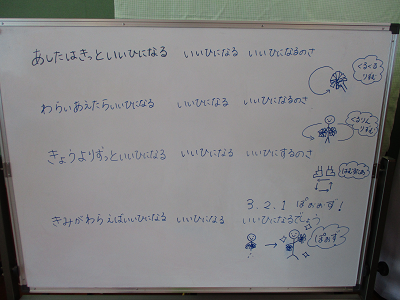 あしたはきっといいひになる いいひになる いいひになるのさ
くるくる
りぼん
わらいあえたらいいひになる いいひになる いいひになるのさ
くるりん
りぼん
きょうよりずっといいひになる いいひになる いいひにするのさ
3.2.1 ぽぉぉず!
きみがわらえばいいひになる いいひになる いいひになるでしょう
ぽぉず